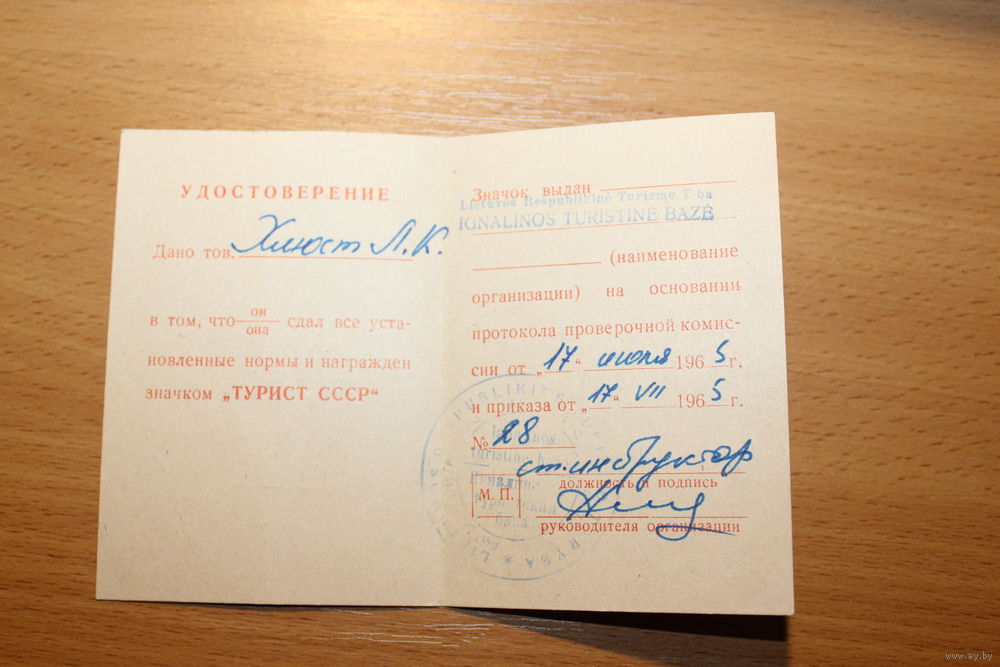 УДОСТОВЕРЕНИЕ
Дано тов. Хлюст Л.К.
в том, что он
она сдал все уста-
новленные нормы и награжден
значком „ТУРИСТ СССР“
Значок выдан
Lietuvos Respublikinė Turizmo T-ba
IGNALINOS TURISTINĖ BAZĖ
(наименование
организации) на основании
протокола проверочной комис-
сии от „17“ июля 1965 г.
и приказа от „17“ VII 1965 г.
№ 28
ст. инструктор
должность и подпись
М. П.
руководителя организации
www.ay.by